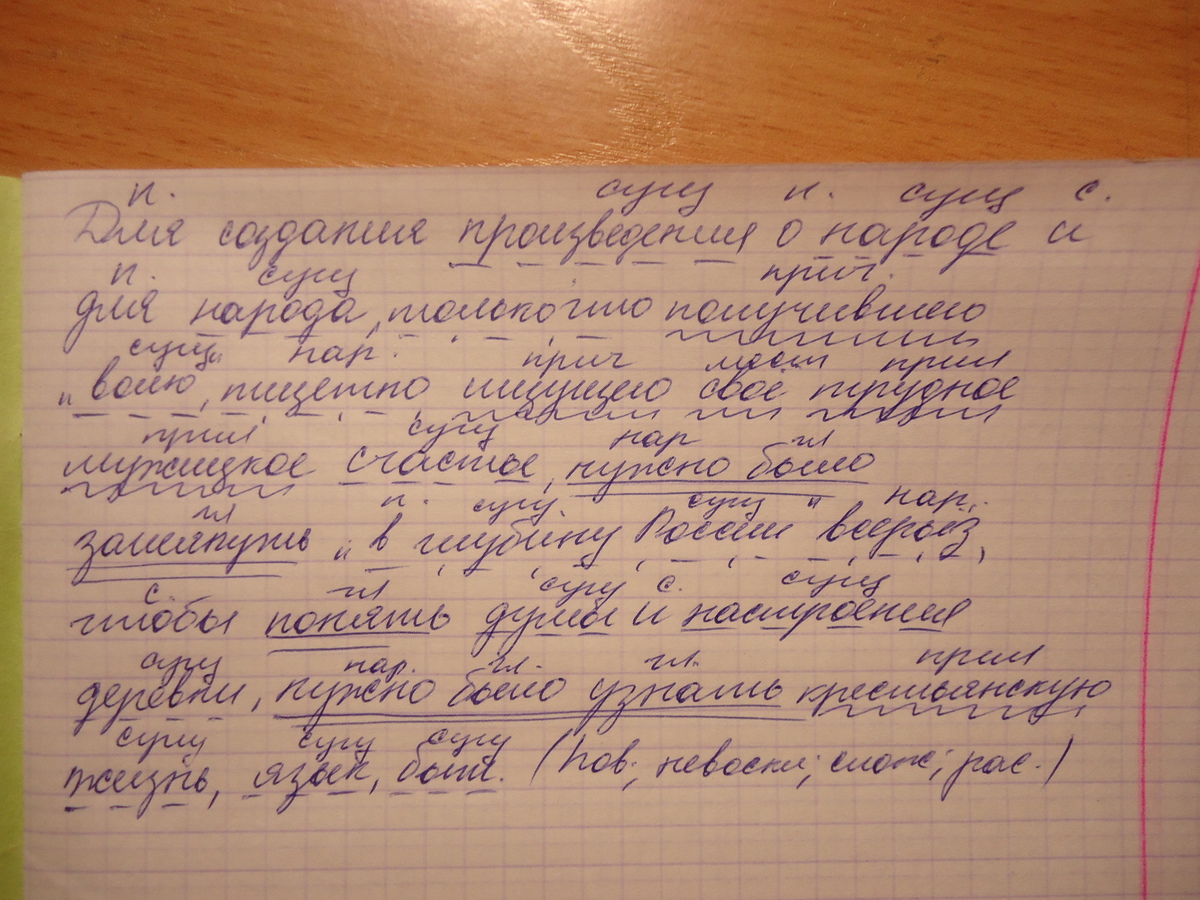 п. сущ п. сущ с.
Для создания произведения о народе и
п. сущ прич.
для народа, только что получившего
сущ нар. прич мест прил
"волю", тщетно ищущего своё трудное
прил сущ нар гл
мужицкое счастье, нужно было
гл п. сущ. сущ нар.
заглянуть "в глубину России" всерьёз,
с. гл сущ с. сущ
чтобы понять думы и настроения
сущ нар. гл. гл. прил
деревни, нужно было узнать крестьянскую
сущ сущ сущ
жизнь, язык, быт. (Пов.; невоскл; слож; рас.)